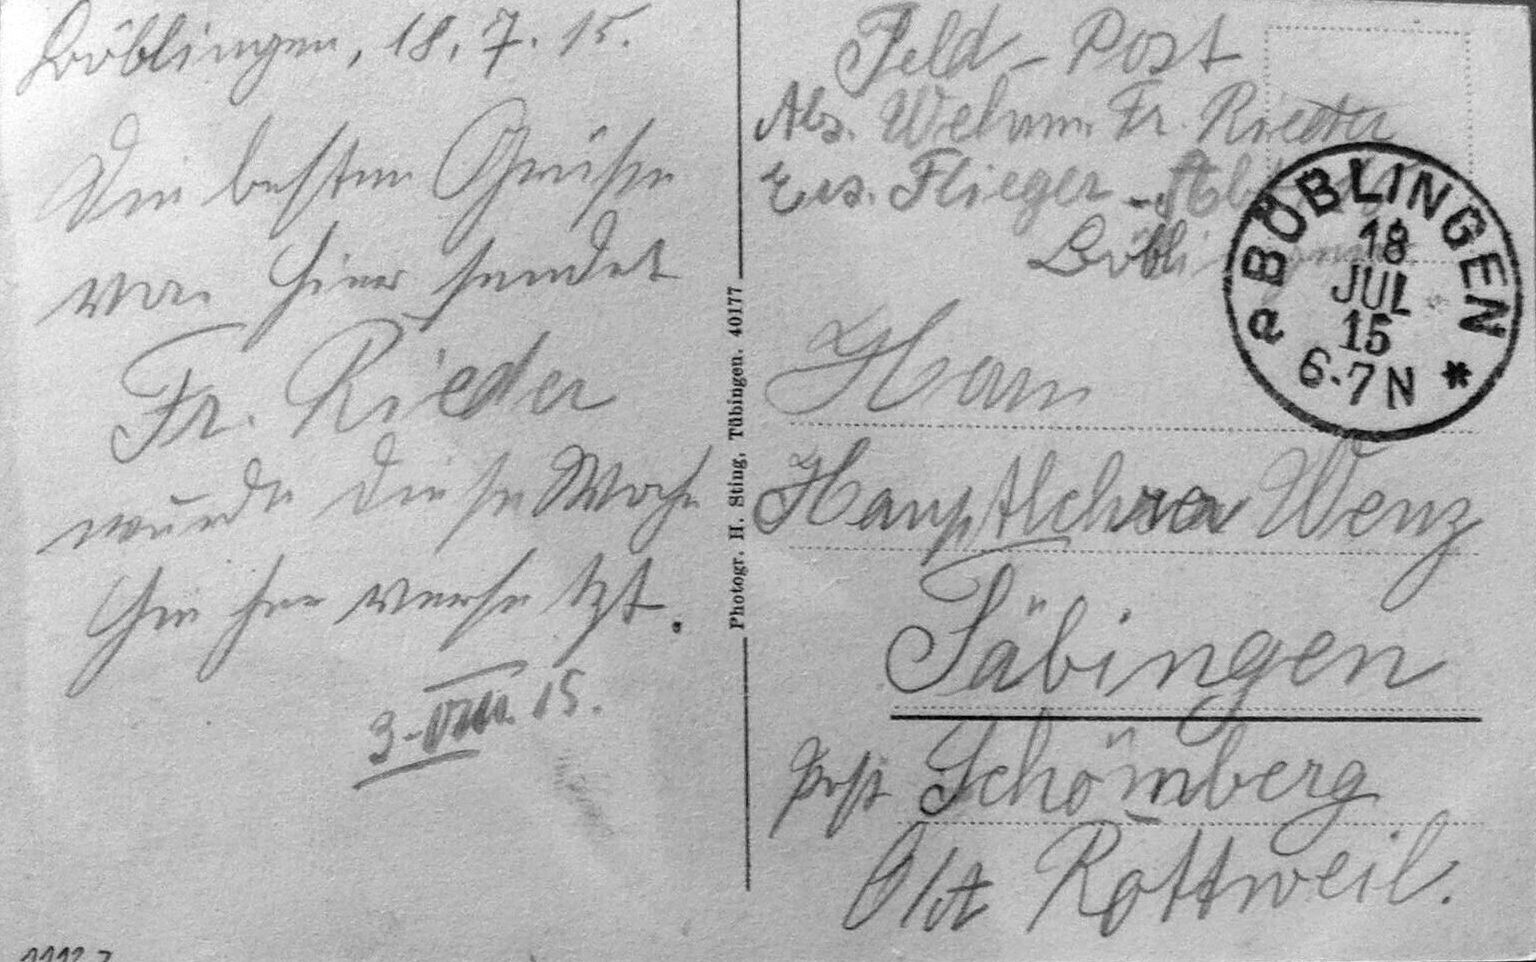 Böblingen, 18. 7. 15.
Die besten Grüße
von hier sendet
Fr. Rieder
wurde diese Woche
hierher versetzt.
3. VIII. 15.
Photogr. H. Sting, Tübingen. 40177
Feld-Post
Abs. Wehrm. Fr. Rieder
Ers. Flieger-Abt.
Böblingen
BÖBLINGEN
18
JUL
15
a 6-7N *
Herrn
Hauptlehrer Wenz
Täbingen
Post Schömberg
O/A Rottweil.